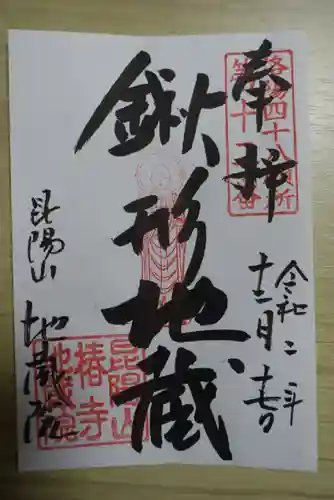 奉拝
令和二年
十二月十一日
鍬形地蔵
昆陽山
地蔵院
洛陽四十八願所
昆陽山
椿寺
地蔵院